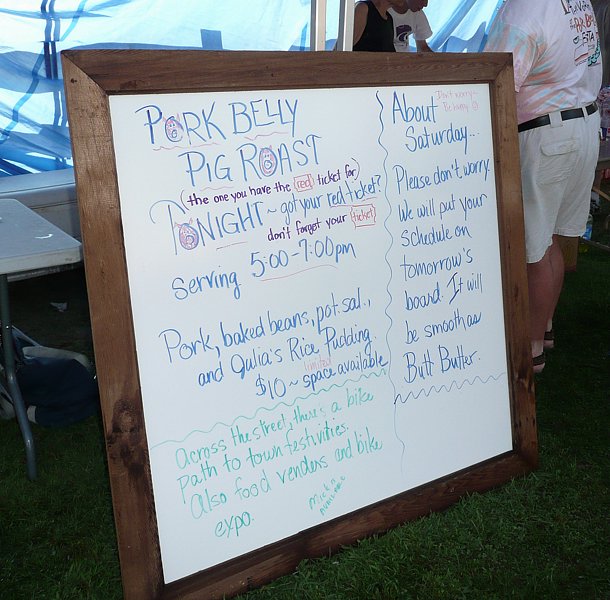 PORK BELLY
PIG ROAST
(the one you have the red ticket for)
TONIGHT ~ got your red ticket?
don't forget your ticket
Serving 5:00-7:00pm
Pork, baked beans, pot. sal.,
and Julia's Rice Pudding.
limited
$10 ~ space available
Across the street, there's a bike
path to town festivities.
Also food venders and bike
expo.
AVAILABLE
About
Don't worry~
Be happy
Saturday...
Please don't worry.
We will put your
schedule on
tomorrow's
board. It will
be smooth as
Butt Butter.